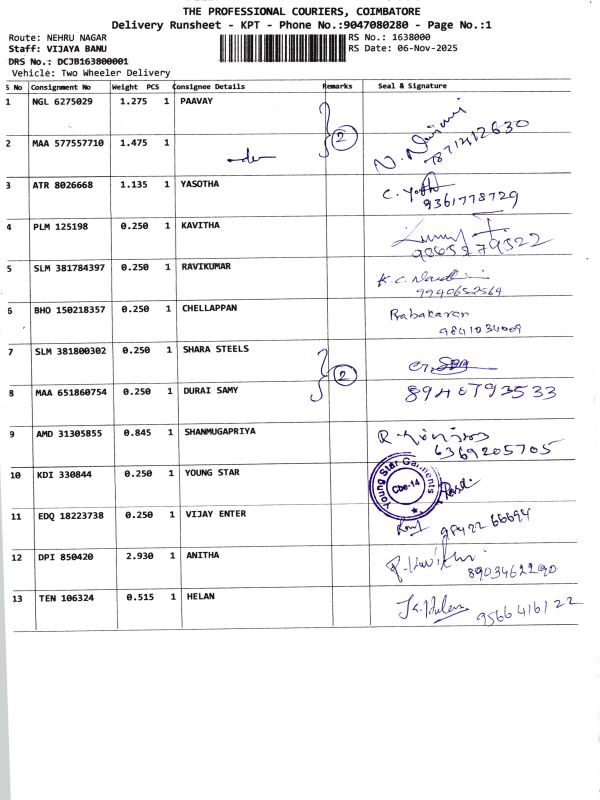 THE PROFESSIONAL COURIERS, COIMBATORE
Delivery Runsheet - KPT - Phone No.:9047080280 - Page No.:1
Route: NEHRU NAGAR RS No.: 1638000
Staff: VIJAYA BANU RS Date: 06-Nov-2025
DRS No.: DCJB163800001
Vehicle: Two Wheeler Delivery
S No Consignment No Weight PCS Consignee Details Remarks Seal & Signature
1 NGL 6275029 1.275 1 PAAVAY
2
7871412630
2 MAA 577557710 1.475 1
3 ATR 8026668 1.135 1 YASOTHA C. Yoth
9361778729
4 PLM 125198 0.250 1 KAVITHA
9865279522
5 SLM 381784397 0.250 1 RAVIKUMAR K.C.
9940652569
6 BHO 150218357 0.250 1 CHELLAPPAN Babakaran
9841034009
7 SLM 381800302 0.250 1 SHARA STEELS
2
8 MAA 651860754 0.250 1 DURAI SAMY 8940793533
9 AMD 31305855 0.845 1 SHANMUGAPRIYA
6369205705
10 KDI 330844 0.250 1 YOUNG STAR Young Star Garments
Cbe-14
11 EDQ 18223738 0.250 1 VIJAY ENTER 98422 66694
12 DPI 850420 2.930 1 ANITHA
8903462290
13 TEN 106324 0.515 1 HELAN K. Helan 9566416122